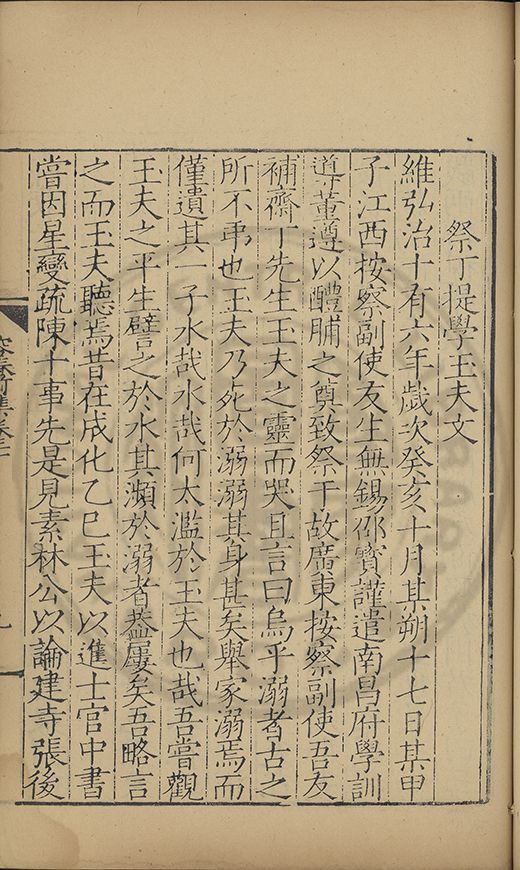 祭丁提學玉夫文
維弘治十有六年歲次癸亥十月其朔十七日其甲
子江西按察副使友生無錫邵寶謹遣南昌府學訓
導董遵以醴脯之奠致祭于故廣東按察副使吾友
補齋丁先生玉夫之靈而哭且言曰烏乎溺者古之
所不弔也玉夫乃死於溺溺其身甚矣舉家溺焉而
僅遺其一子水哉水哉何太濫於玉夫也哉吾嘗觀
玉夫之平生譬之於水其瀕於溺者蓋屢矣吾略言
之而玉夫聽焉昔在成化乙巳玉夫以進士官中書
嘗因星變疏陳十事先是見素林公以論建寺張後